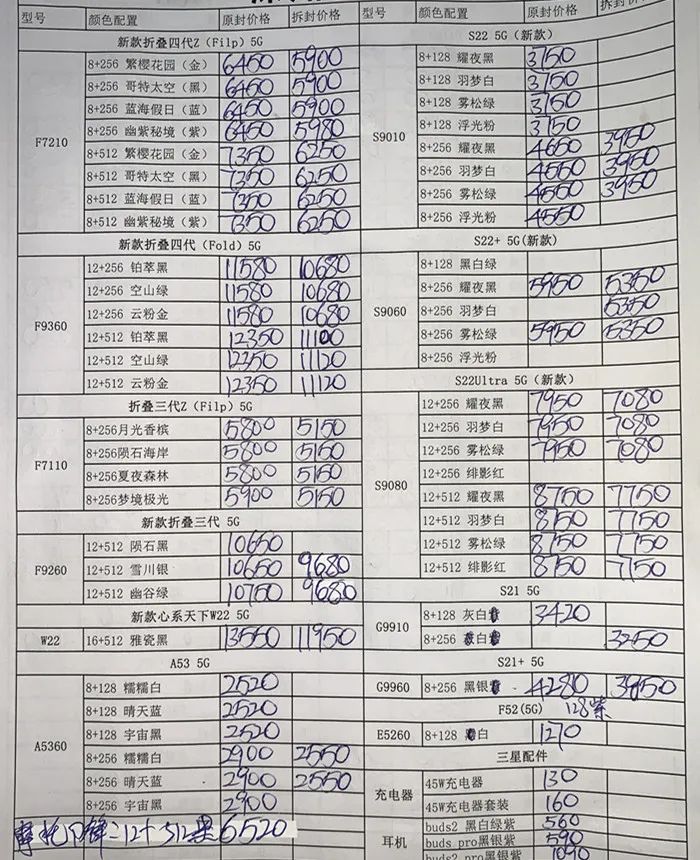 型号 颜色配置 原封价格 拆封价格
新款折叠四代Z（Filp）5G
F7210
8+256 繁樱花园（金） 6450 5900
8+256 哥特太空（黑） 6450 5900
8+256 蓝海假日（蓝） 6450 5900
8+256 幽紫秘境（紫） 6450 5980
8+512 繁樱花园（金） 7350 6250
8+512 哥特太空（黑） 7350 6250
8+512 蓝海假日（蓝） 7350 6250
8+512 幽紫秘境（紫） 7350 6250
新款折叠四代（Fold）5G
F9360
12+256 铂萃黑 11580 10680
12+256 空山绿 11580 10680
12+256 云粉金 11580 10680
12+512 铂萃黑 12350 11100
12+512 空山绿 12350 11120
12+512 云粉金 12350 11120
折叠三代Z（Filp）5G
F7110
8+256月光香槟 5800 5150
8+256陨石海岸 5800 5150
8+256夏夜森林 5800 5150
8+256梦境极光 5900 5150
新款折叠三代 5G
F9260
12+512 陨石黑 10650
12+512 雪川银 10650 9680
12+512 幽谷绿 10750 9680
新款心系天下W22 5G
W22 16+512 雅瓷黑 13550 11950
A53 5G
A5360
8+128 糯糯白 2520
8+128 晴天蓝 2520
8+128 宇宙黑 2520
8+256 糯糯白 2900 2550
8+256 晴天蓝 2900 2550
8+256 宇宙黑 2900
12+512黑6520
型号 颜色配置 原封价格 拆封价格
S22 5G（新款）
S9010
8+128 耀夜黑 3750
8+128 羽梦白 3750
8+128 雾松绿 3750
8+128 浮光粉 3750
8+256 耀夜黑 4650 3950
8+256 羽梦白 4550 3950
8+256 雾松绿 4550 3950
8+256 浮光粉 4550
S22+ 5G(新款)
S9060
8+128 黑白绿
8+256 耀夜黑 5950 5350
8+256 羽梦白 5350
8+256 雾松绿 5950 5350
8+256 浮光粉
S22Ultra 5G（新款）
S9080
12+256 耀夜黑 7950 7080
12+256 羽梦白 7950 7080
12+256 雾松绿 7950 7080
12+256 绯影红
12+512 耀夜黑 8750 7750
12+512 羽梦白 8750 7750
12+512 雾松绿 8750 7750
12+512 绯影红 8750 7750
S21 5G
G9910
8+128 灰白 3420
8+256 白 3250
S21+ 5G
G9960 8+256 黑银 4280 3950
F52(5G) 128紫
E5260 8+128 白 1270
三星配件
充电器
45W充电器 130
45W充电器套装 160
耳机
buds2 黑白绿紫 560
buds pro黑银紫 590
buds2 pro黑银紫 1090